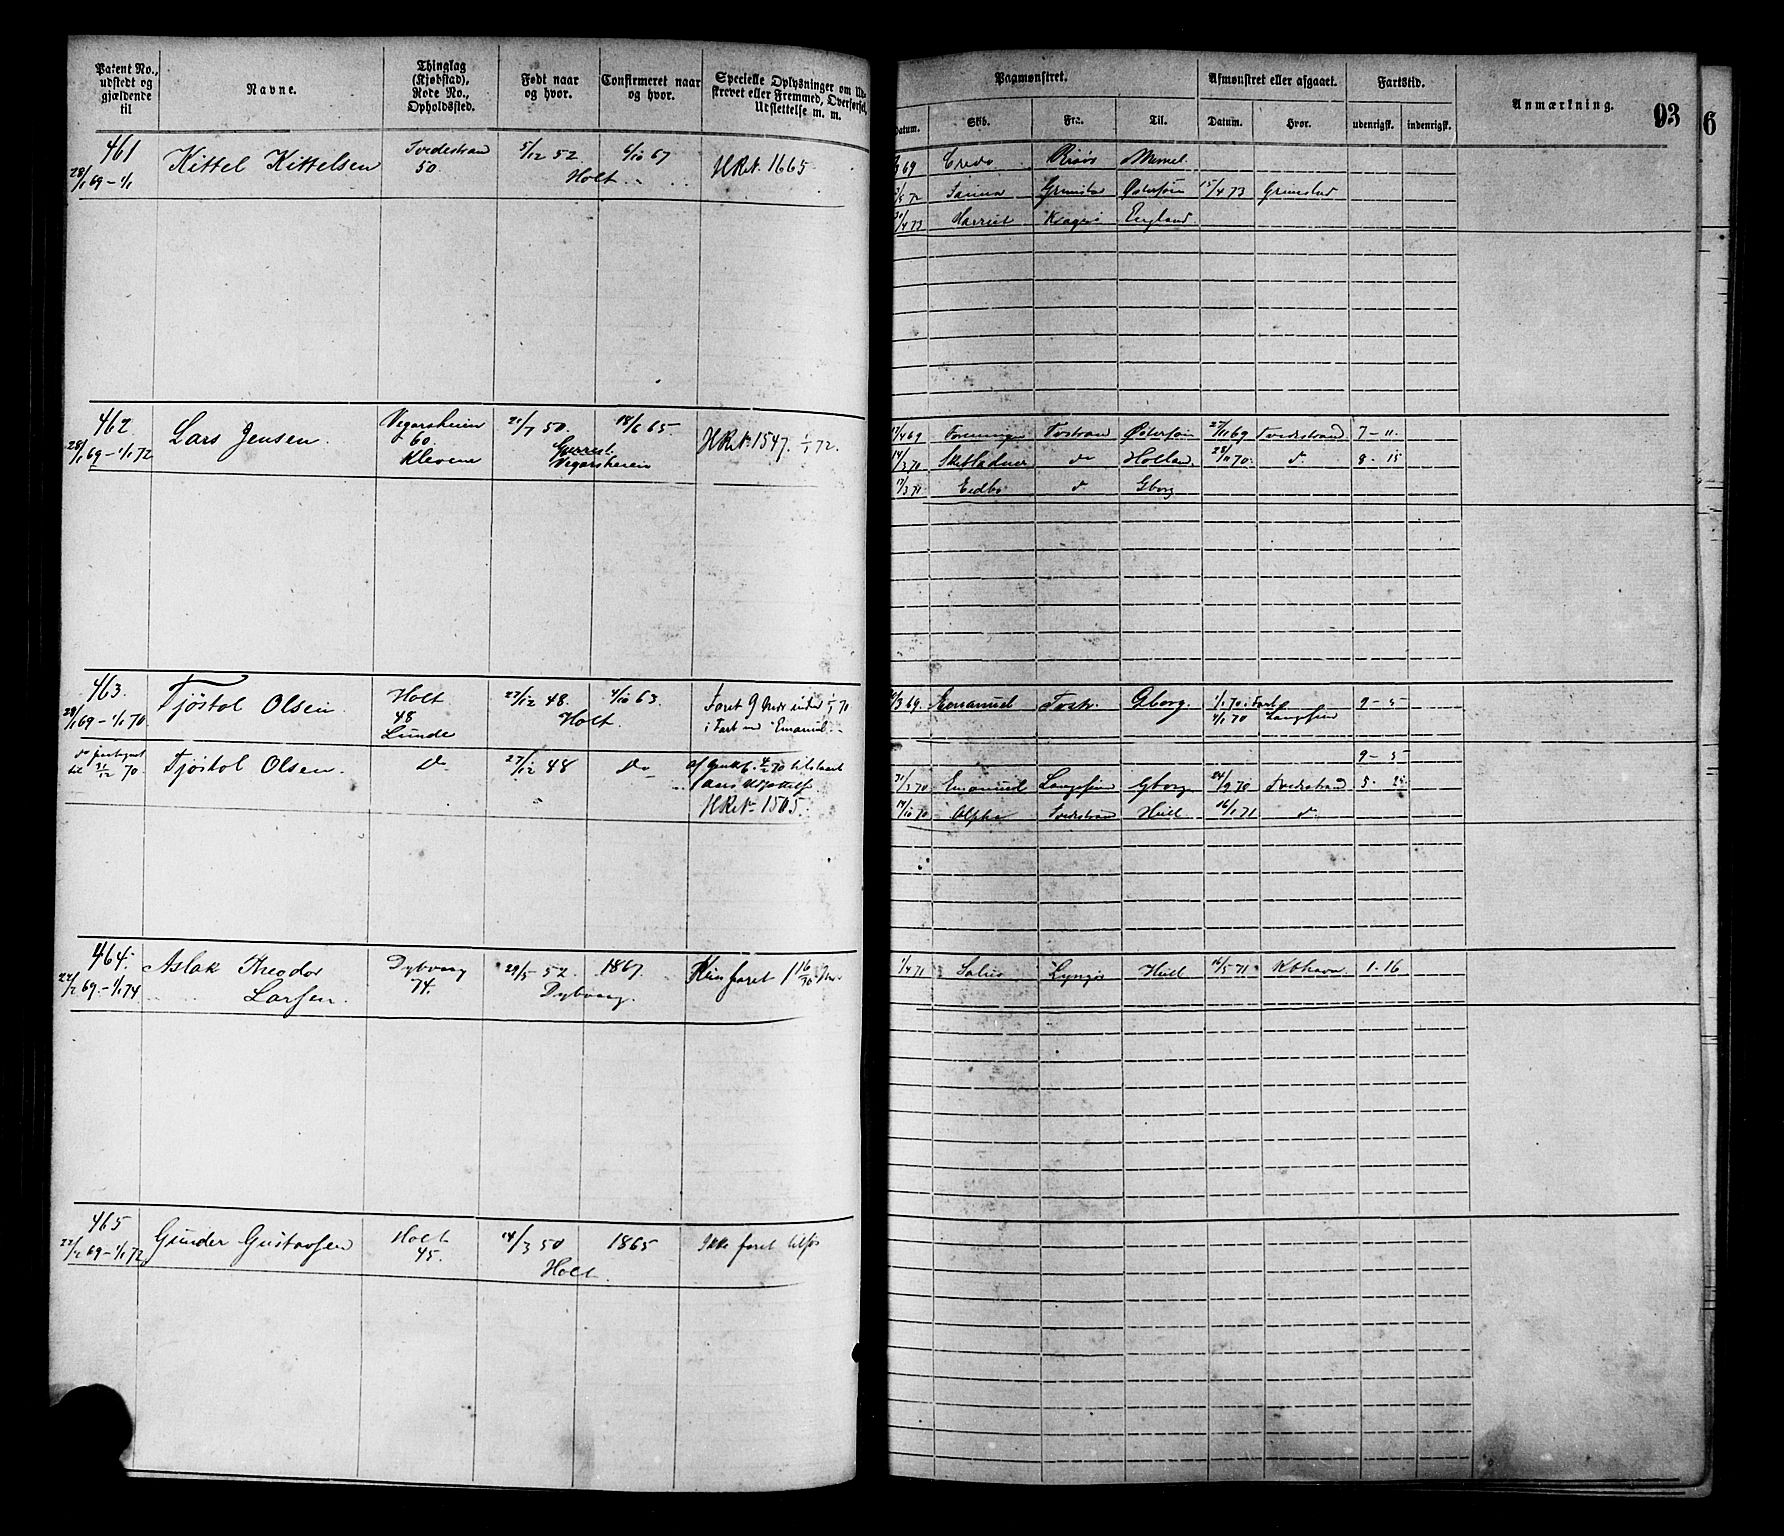 Patent No., udstedt og gjældende til
Navne.
Thinglag (Kjøbstad), Rode No., Opholdssted.
Født naar og hvor.
Confirmeret naar og hvor.
Specielle Oplysninger om Ud-
skrevet eller Fremmed, Overførsel,
Udslettelse m. m.
Paamønstret.
Afmønstret eller afgaaet.
Fartstid.
Anmærkning.
93
6
Datum.
Skib.
Fra.
Til.
Datum.
Hvor.
udenrigsk.
indenrigsk.
461
28/1 69 - 1/1
Kittel Kittelsen
Tvedestran
50.
5/12 52.
Holt
6/10 67
HR No 1665
69 Credo Risør Memel
72 Grimsta Østersøen 15/4 73 Grimstad
/4 73 Harriet Kragerø England
462
28/1 69 - 1/1 72
Lars Jensen.
Vegarsheien
60.
Klevene
21/7 50.
Vegarsheien
18/6 65.
HR No 1547. 1/1 72.
17/4 69 Foreningen Tvstrand Østersøen 27/11 69 Tvedestrand 7 - 11.
14/3 70 Skibladner do Holland 28/11 70. do. 8 - 15
17/3 71 Eidbo do Gborg
463.
28/1 69 - 1/1 70
Tjøstol Olsen
Holt
48
Lunde
27/12 48.
Holt
4/10 63.
Faret 9
i Fart m Emanuel
/3 69. Emanuel Tvstr. Gborg. 1/1 70 i Fart 9 - 5
4/1 70 Langesund
do
til 31/12 70.
Tjøstol Olsen.
do
27/12 48
do
HR No 1505.
9 - 5
21/3 70 Emanuel Langesund Gborg 24/9 70 Tvedestrand 5. 25
14/10 70 Alpha Tvedestrand Hull 16/1 71 do
464.
22/2 69 - 1/1 74
Aslak Theodor
Larsen.
Dybvaag
74.
29/5 52.
Dybvaag.
1867.
Kun faret 1 16/30
1/4 71 Lyngør Hull 16/5 71 Kbhavn 1 - 16
465
22/2 69 - 1/1 72
Gunder Gustavsen
Holt
45.
14/3 50
Holt.
1865
Ikke faret tilsøs